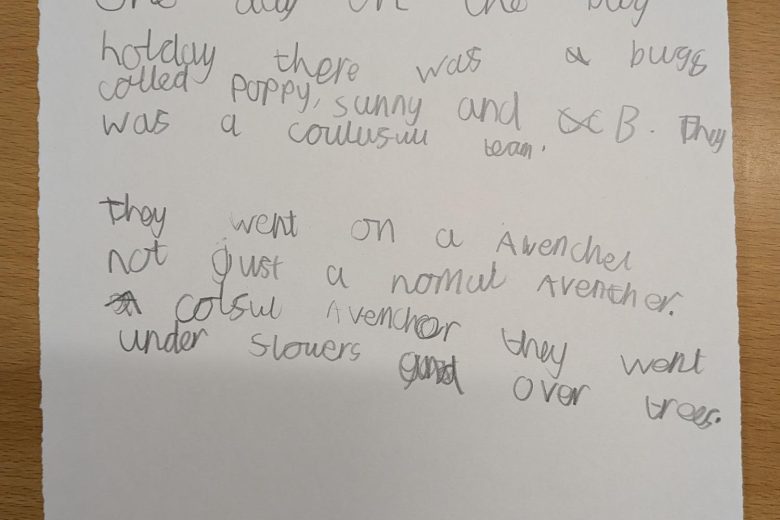 One day on the bug
holday there was a bugs
called Poppy, sunny and B. They
was a coulusuu team.
they went on a Avenchel
not Just a nomul Aventher.
colsul Avenchor they went
under slowers and over trees.